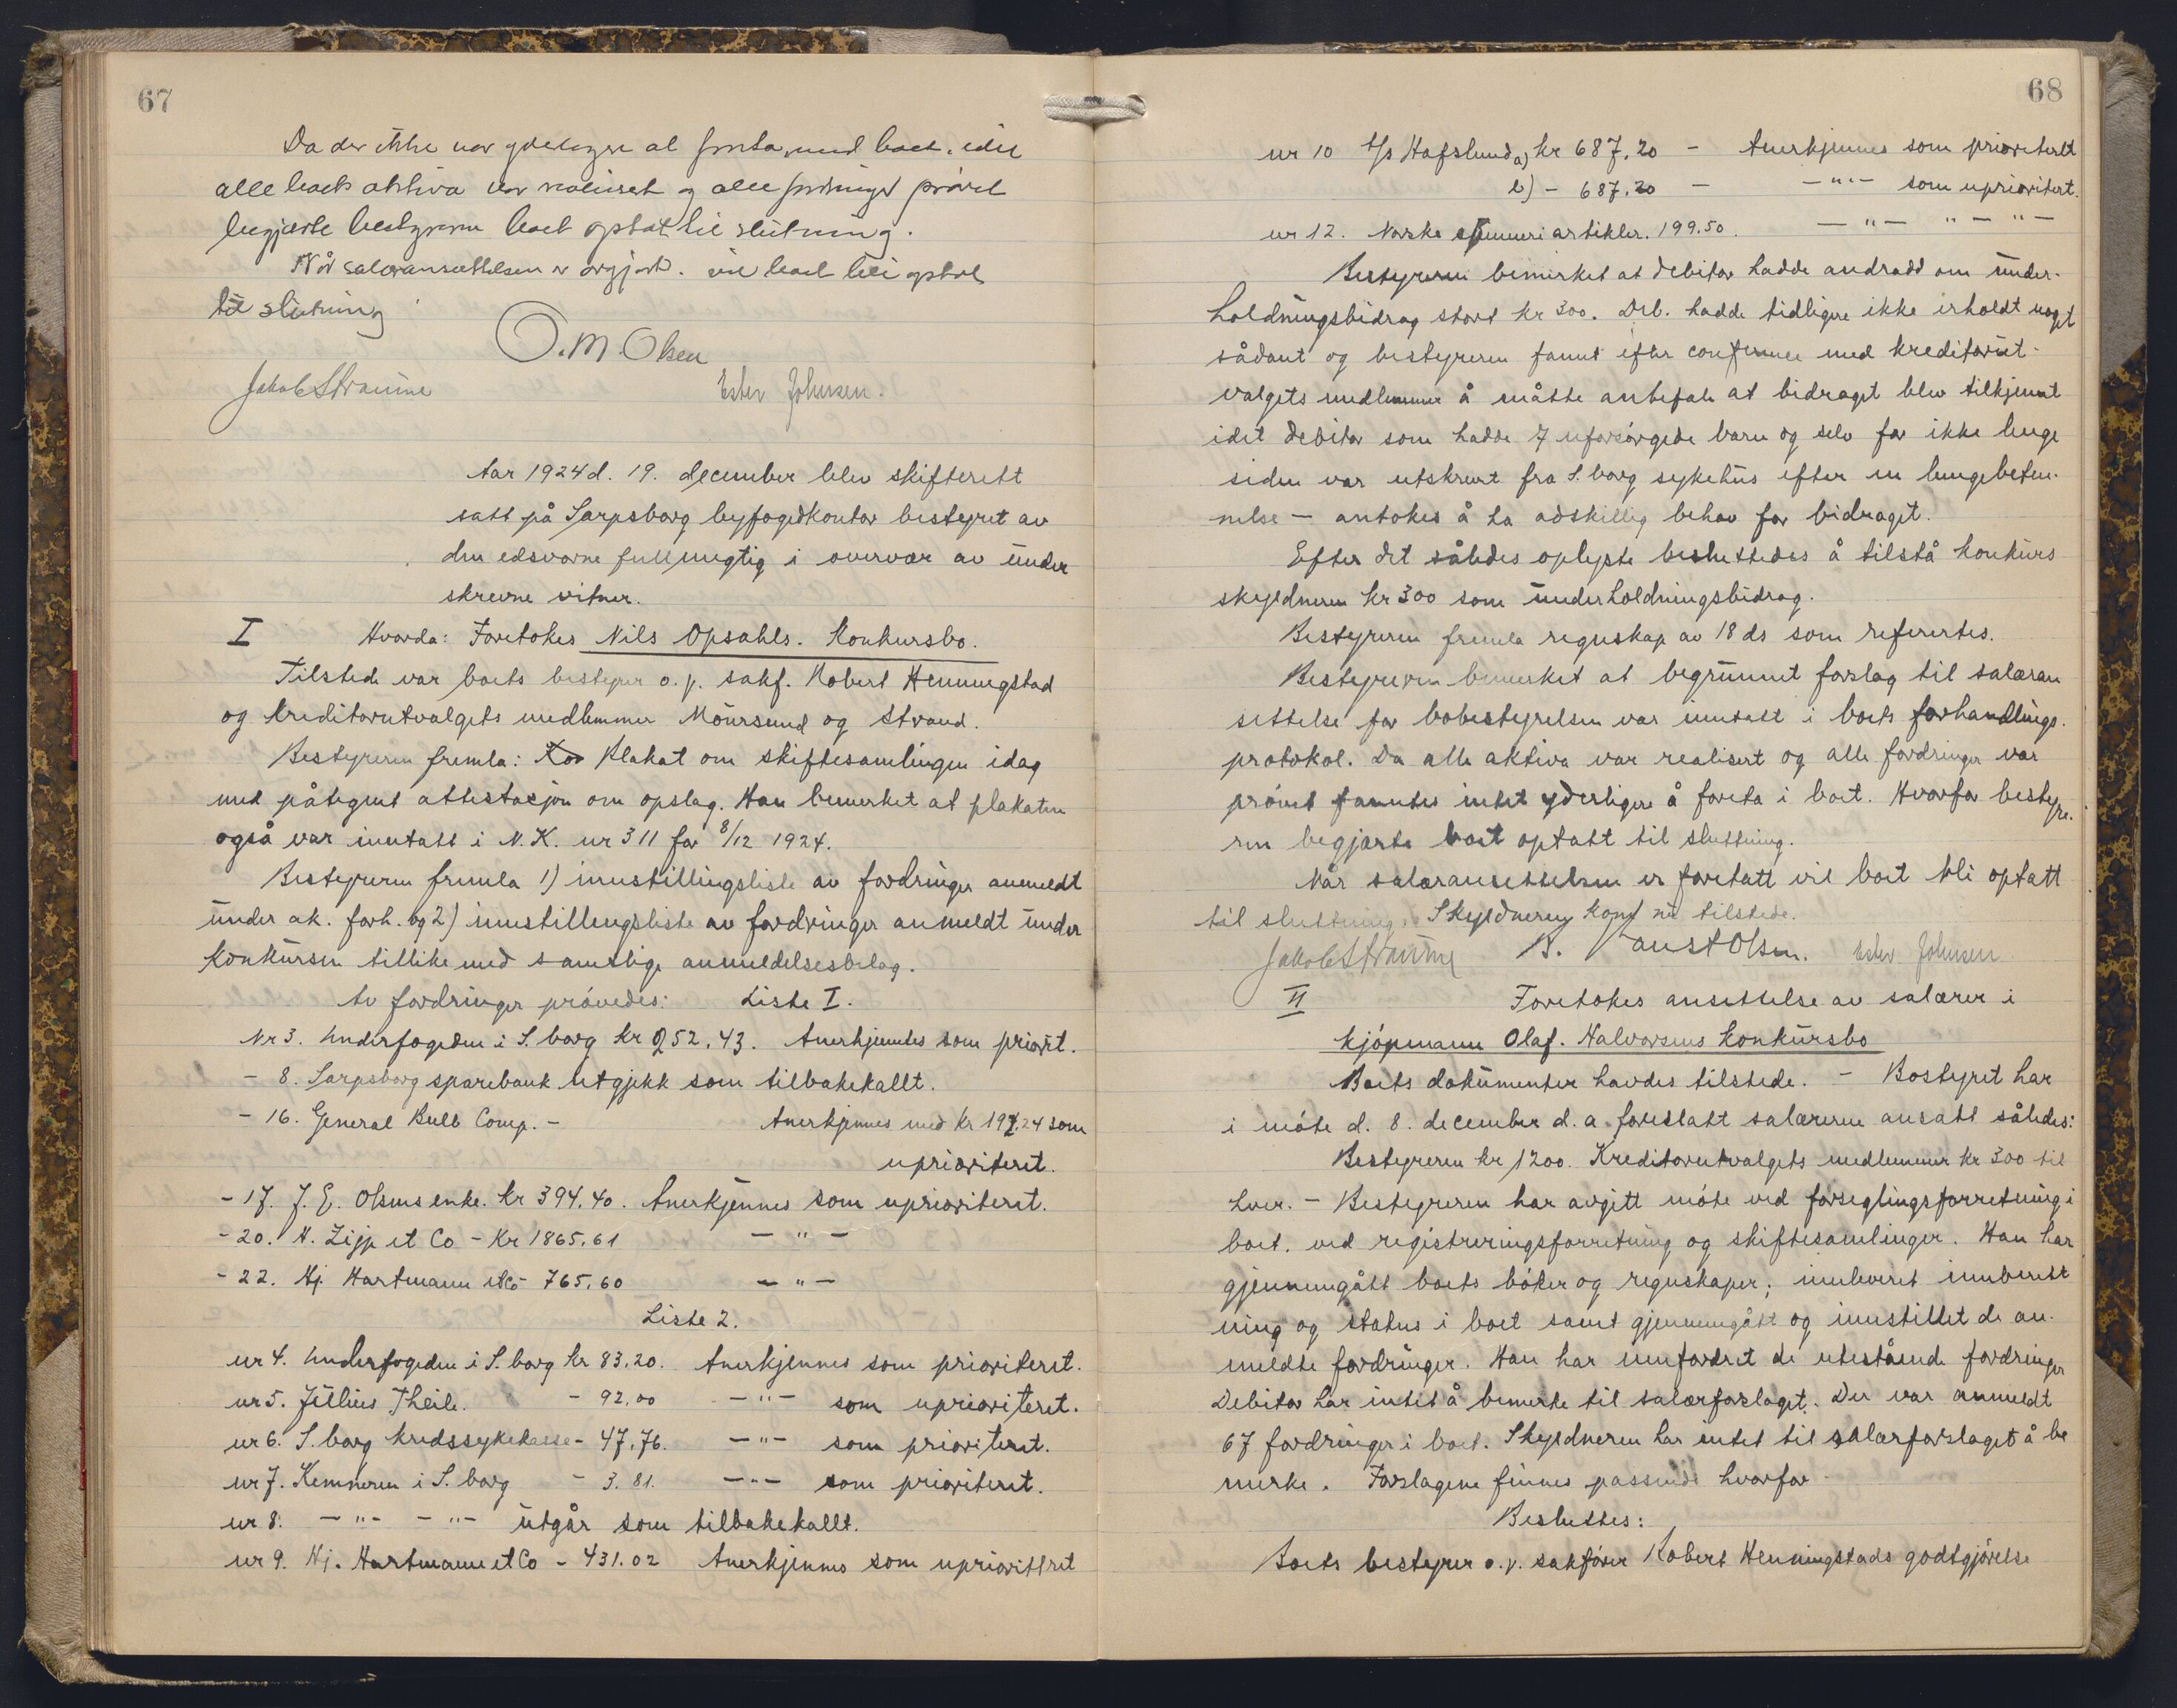 67
Da der ikke var yderligere at foreta med boet, idet
alle boets aktiva var realisert og alle fordringer prøvet
begjærte bestyreren boet optat til slutning.
Når salæransættelsen er avgjort. vil boet bli optat
til slutning
O. M. Olsen
Jakob Straume Ester Johnsen.
Aar 1924 d. 19. december blev skifterett
satt på Sarpsborg byfogedkontor bestyret av
den edsvorne fullmegtig i overvær av under
skrevne vitner.
I Hvorda: Foretokes Nils Opsahls. Konkursbo.
Tilstede var boets bestyrer o.r. sakf. Robert Henningstad
og kreditorutvalgets medlemmer Moursund og Strand.
Bestyreren fremla: Plakat om skiftesamlingen idag
med påtegnet attestasjon om opslag. Han bemerket at plakaten
også var inntatt i N.K. nr 311 for 8/12 1924.
Bestyreren fremla 1) innstillingsliste av fordringer anmeldt
under ak. forh. og 2) innstillingsliste av fordringer anmeldt under
konkursen tillike med samtlige anmeldelsesbilag.
Av fordringer prøvedes: Liste I.
Nr 3. Underfogeden i S.borg kr 252,43. Anerkjentes som priorit.
- 8. Sarpsborg sparebank utgjekk som tilbakekallt.
- 16. General Bulb Comp. - Anerkjennes med kr 197.24 som
uprioriteret.
- 17. J. E. Olsens enke. kr 394.40. Anerkjennes som uprioriteret.
- 20. H. Zijp et Co - Kr 1865,61 - " -
- 22. Hj. Hartmann et Co - 765,60 - " -
Liste 2.
nr 4. Underfogeden i S.borg kr 83,20. Anerkjennes som prioriteret.
nr 5. Julius Theile. - 92,00 - " - som uprioriteret.
nr 6. S.borg kredssykekasse - 47,76. - " - som prioriteret.
nr 7. Kemneren i S.borg - 3.81. - " - som prioriteret.
nr 8. - " - - " - utgår som tilbakekallt.
nr 9. Hj. Hartmann et Co - 431.02 Anerkjennes som uprioriteret
68
nr 10 A/s Hafslund a) kr 687,20 - Anerkjennes som prioritert
b) - 687,20 - - " - som uprioritert.
nr 12. Norske artikler. 199.50. - " - " - " -
Bestyreren bemerket at debitor hadde andradd om under-
holdningsbidrag stort kr 300. Deb. hadde tidligere ikke erholdt noget
sådant og bestyreren fannt efter conferance med kreditorut-
valgets medlemmer å måtte anbefale at bidraget blev tilkjennt
idet debitor som hadde 7 uforsørgede barn og selv for ikke lenge
siden var utskrevet fra S.borg sykehus efter en lungebeten-
nelse - antokes å ha adskillig behov for bidraget.
Efter det således oplyste besluttedes å tilstå konkurs
skyldneren kr 300 som underholdningsbidrag.
Bestyreren fremla regnskap av 18 ds som referertes.
Bestyreren bemerket at begrunnet forslag til salæran
settelse for bobestyrelsen var inntatt i boets forhandlings.
protokol. Da alle aktiva var realisert og alle fordringer var
prøvet fanntes intet yderligere å foreta i boet. Hvorfor bestyre.
ren begjærte boet optatt til sluttning.
Når salæransettelsen er foretatt vil boet bli optatt
til sluttning. Skyldneren kom nu tilstede.
Jakob Straume Faust Olsen. Ester Johnsen
II Foretokes ansettelse av salærer i
kjøpmann Olaf. Halvorsens konkursbo
Boets dokumenter havdes tilstede. - Bostyret har
i møte d. 8. december d.a foreslatt salærerne ansatt således:
Bestyreren kr 1200. Kreditorutvalgets medlemmer kr 300 til
hver. - Bestyreren har avgitt møte ved forseglingsforretning i
boet. ved registreringsforretning og skiftesamlinger. Han har
gjennemgått boets bøker og regnskaper; innleveret innberett
ning og status i boet samt gjennemgått og innstillet de an-
meldte fordringer. Han har innfordret de utestående fordringer
Debitor har intet å bemerke til salærforslaget. Der var anmeldt
67 fordringer i boet. Skyldneren har intet til salærforslaget å be
merke. Forslagene finnes passende hvorfor
Besluttes:
Boets bestyrer o.r. sakfører Robert Henningstads godtgjørelse